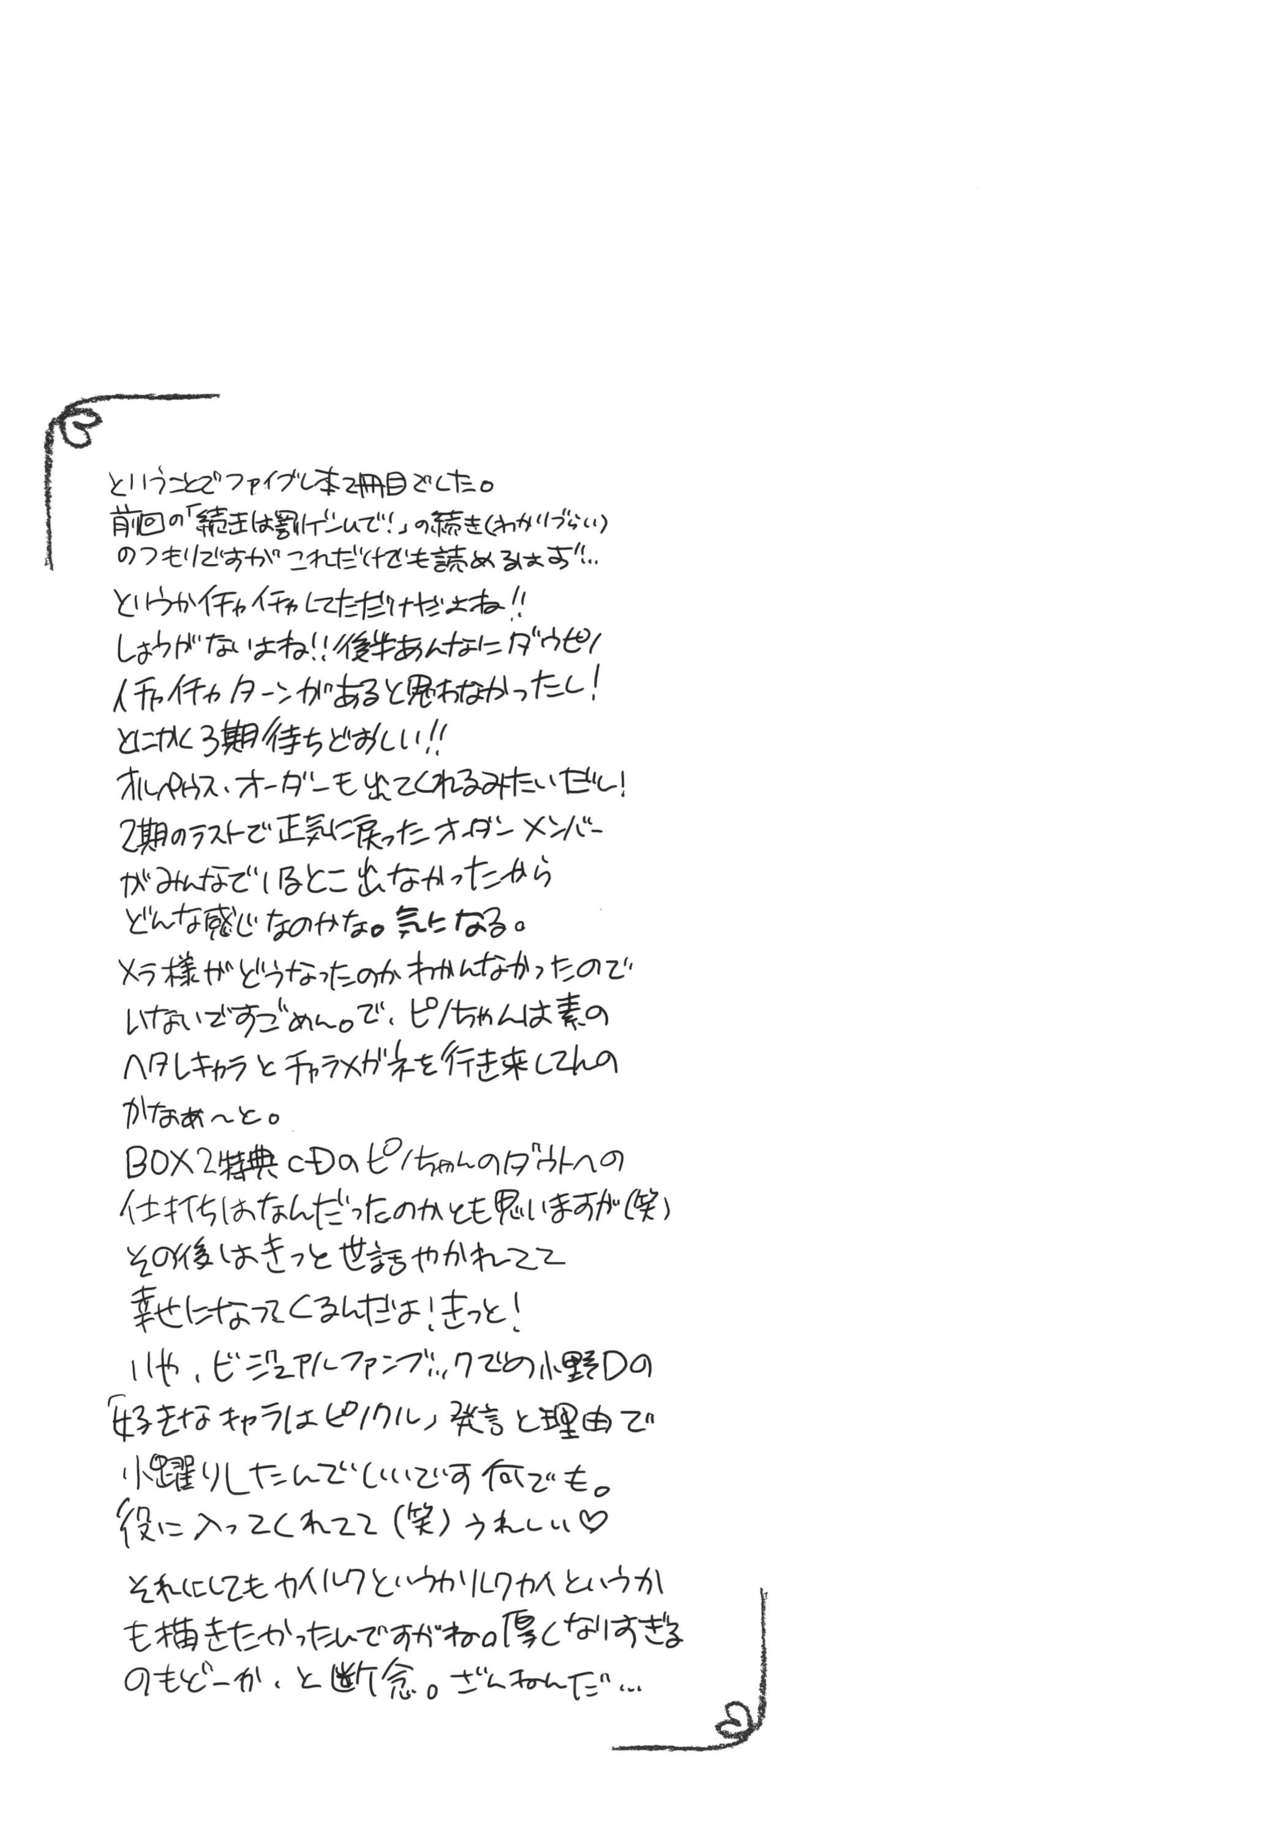 ということでファイブレ本2冊目でした。
前回の「続きは割ゲンムで!」の続き(わかりづらい)
のつもりですがこれだけでも読めるはず…
というかイチャイチャしてただけだよね!!
しょうがないよね!!後半あんなにダウピノ
イチャイチャターンがあると思わなかったし!
とにかく3期待ちどおしい!!
オルペウス・オーダーも出てくれるみたいだし!
2期のラストで正気に戻ったオーダーメンバー
がみんなでいるとこ出なかったから
どんな感じなのかな。気になる。
メラ様がどうなったのかわかんなかったので
いないですごめん。で、ピノちゃんは素の
ヘタレキャラとチャラメガネを行き来してんの
かなぁ〜と。
BOX2特典CDのピノちゃんのダウトへの
仕打ちはなんだったのかとも思いますが(笑)
その後はきっと世話やかれてて
幸せになってくるんだよ!きっと!
いや、ビジュアルファンブックでの小野Dの
「好きなキャラはピノクル」発言と理由で
小躍りしたんでいいです何でも。
役に入ってくれてて(笑)うれしい♡
それにしてもカイルクというかルクカイというか
も描きたかったんですがね。厚くなりすぎる
のもどーか、と断念。ざんねんだ…